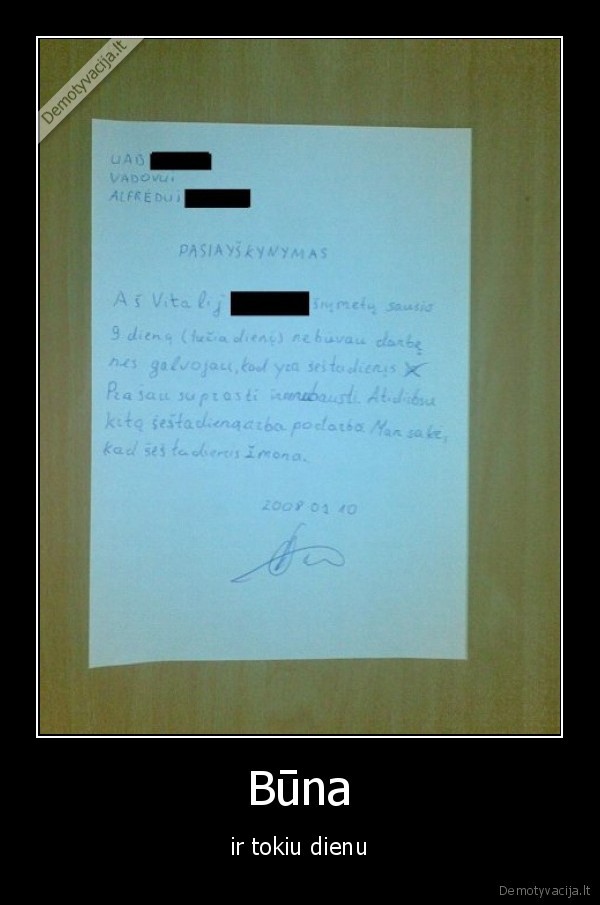 Demotyvacija.lt
UAB
VADOVUI
ALFREDUI
PASIAYŠKYNYMAS
Aš Vitalij šiųmetų sausio
9 dieną (tračiadienį) nebuvau darbę
nes galvojau, kad yra šeštadienis
Prašau suprasti ir nebausti. Atidirbsiu
kitą šeštadieną arba po darbo. Man sakė,
kad šeštadienis žmona.
2008 01 10
Būna
ir tokiu dienu
Demotyvacija.lt